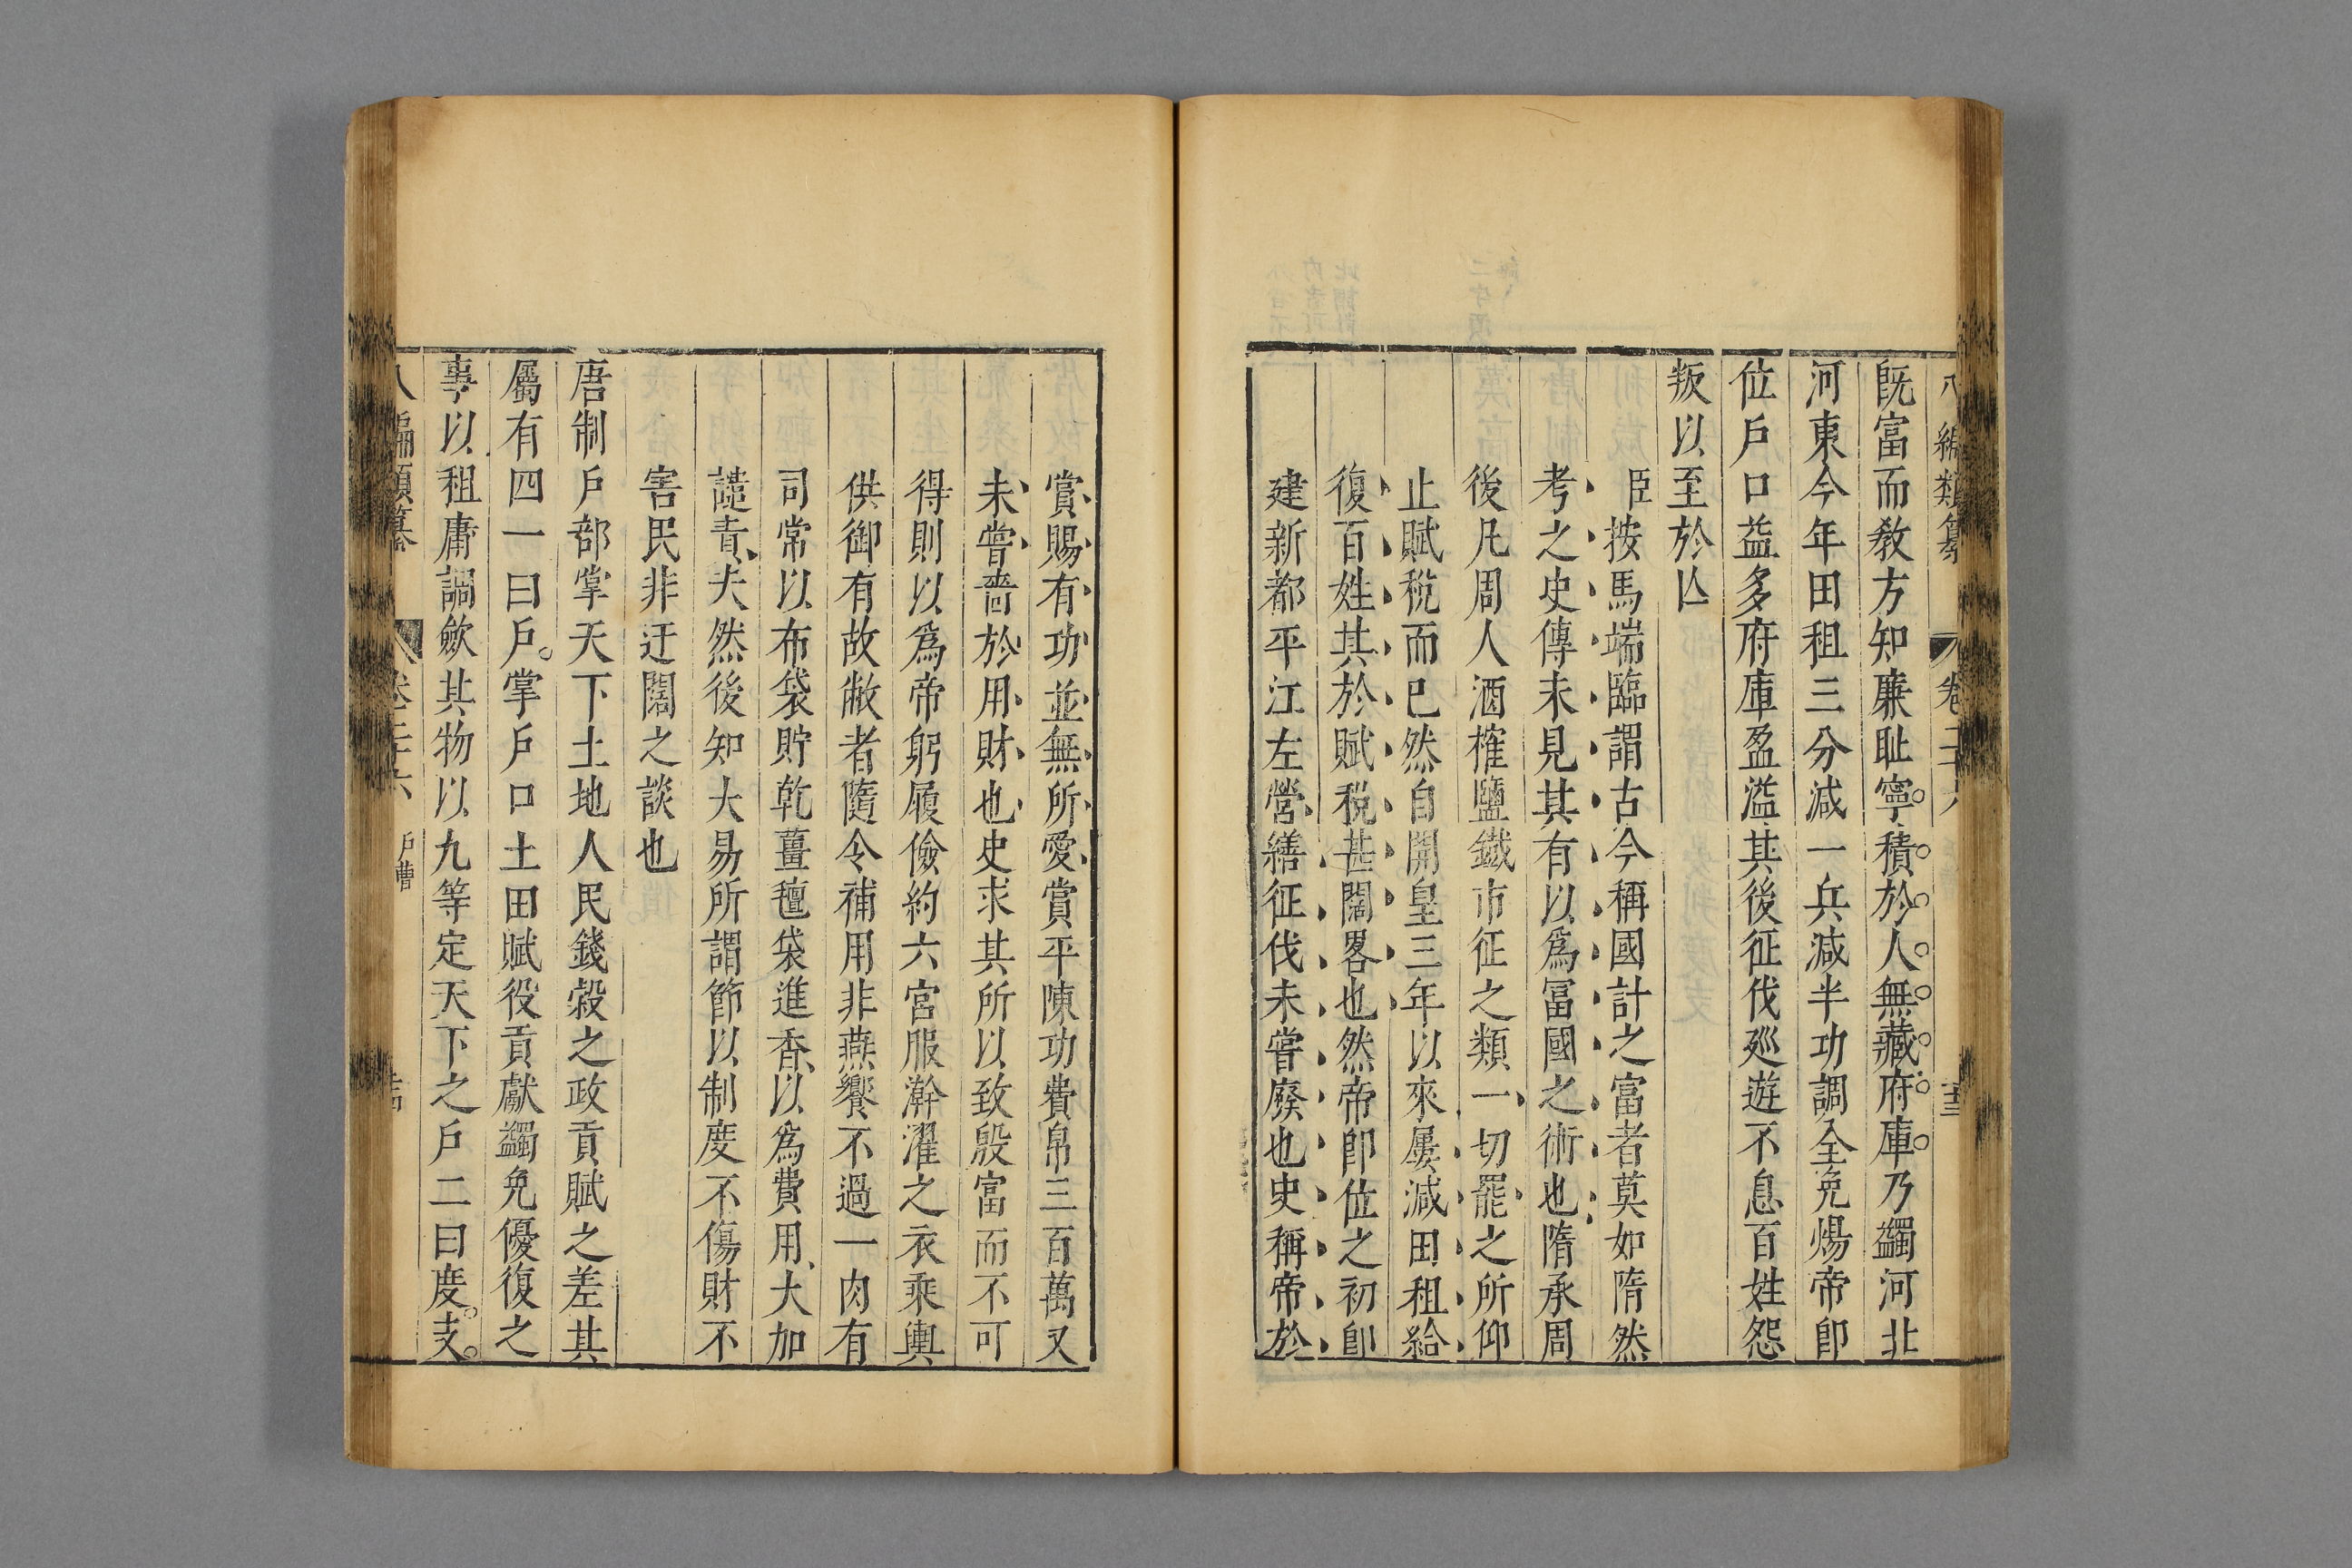 八編類纂 卷二十六 十三
既富而敎方知廉耻寧積於人無藏府庫乃蠲河北
河東今年田租三分减一兵减半功調全免煬帝卽
位戶口益多府庫盈溢其後征伐廵遊不息百姓怨
叛以至於亾
臣按馬端臨謂古今稱國計之富者莫如隋然
考之史傳未見其有以爲冨國之術也隋承周
後凡周人酒榷鹽鐵市征之類一切罷之所仰
止賦稅而已然自開皇三年以來屢减田租給
復百姓其於賦稅甚闊畧也然帝卽位之初卽
建新都平江左營繕征伐未嘗廢也史稱帝於
賞賜有功並無所愛賞平陳功費帛三百萬又
未嘗嗇於用財也史求其所以致殷富而不可
得則以爲帝躬履儉約六宮服澣濯之衣乘輿
供御有故敝者隨令補用非燕饗不過一肉有
司常以布袋貯乾薑氊袋進香以爲費用大加
譴責夫然後知大易所謂節以制度不傷財不
害民非迂闊之談也
唐制戶部掌天下土地人民錢榖之政貢賦之差其
屬有四一曰戶掌戶口土田賦役貢獻蠲免優復之
事以租庸調歛其物以九等定天下之戶二曰度支
八編類纂 卷二十六 戶曹